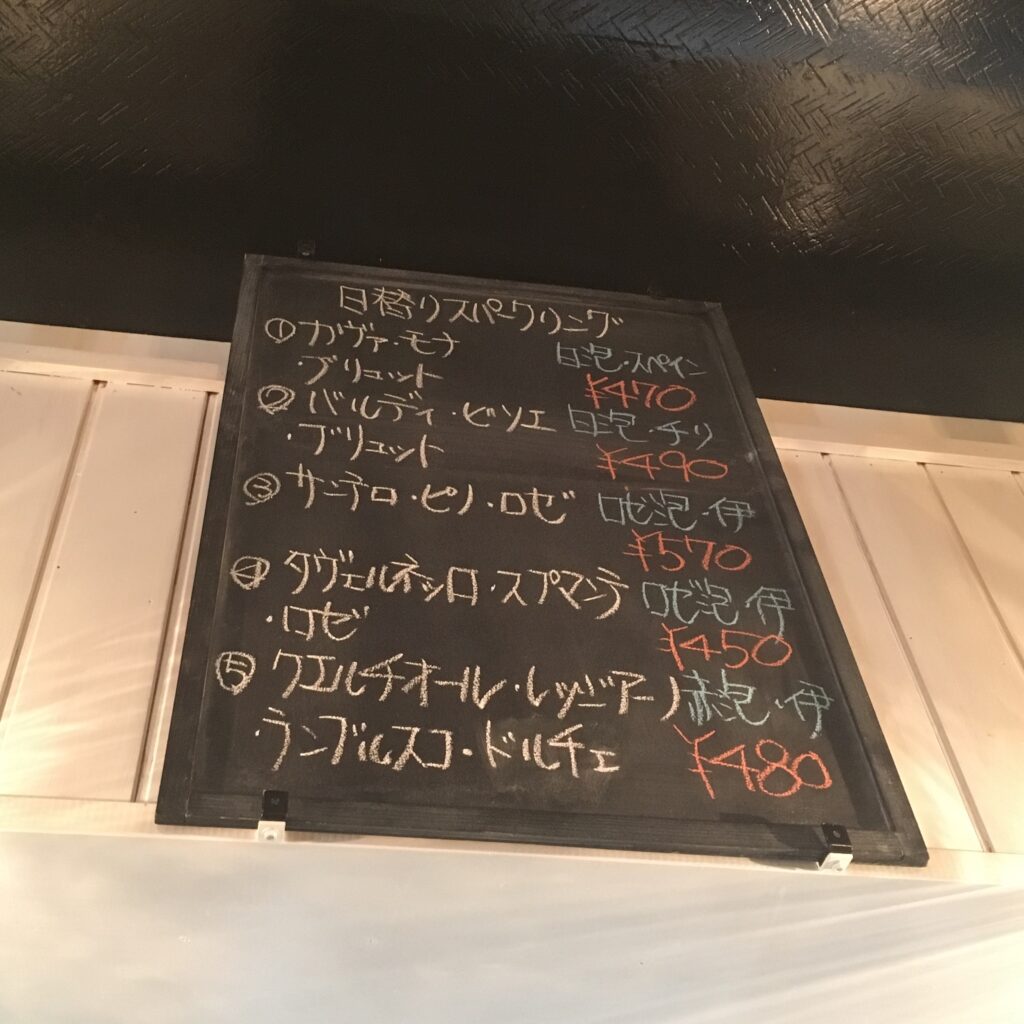 日替りスパークリング
①カヴァ・モナ
・ブリュット 白泡・スペイン
¥470
②バルディ・ビソエ 白泡・チリ
・ブリュット
¥490
③サンテロ・ピノ・ロゼ ロゼ泡・伊
¥570
④タヴェルネッロ・スプマンテ ロゼ泡・伊
・ロゼ
¥450
⑤クエルチオール・レッジアーノ 赤泡・伊
・ランブルスコ・ドルチェ
¥480